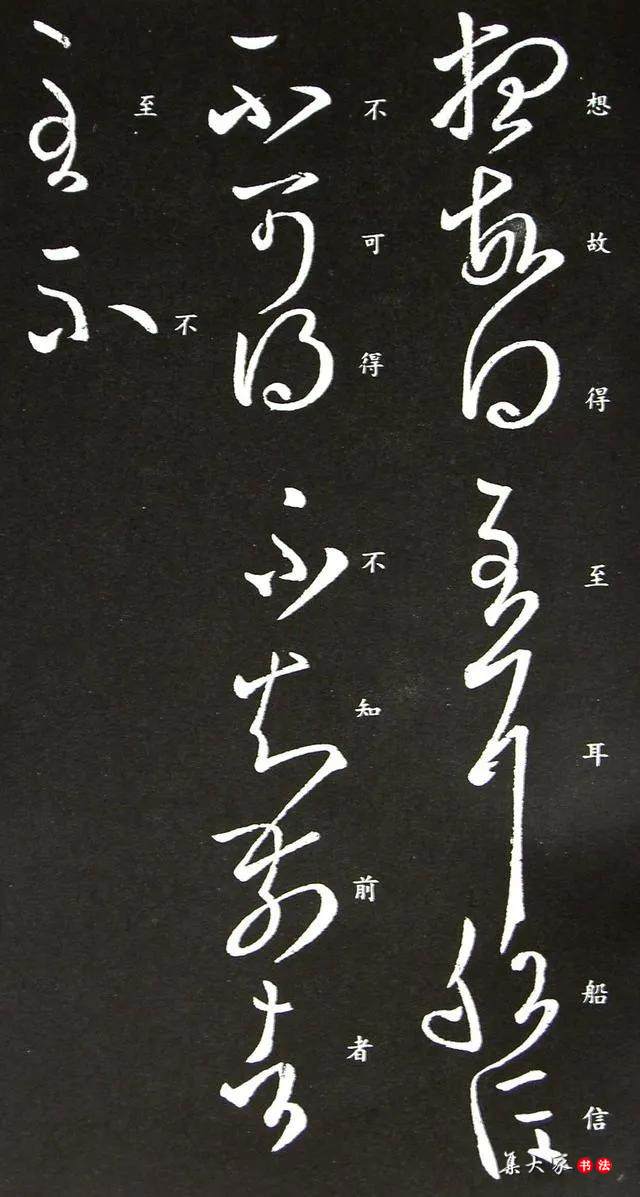 想故得至耳船信
不可得不知前者
至不
集大家书法